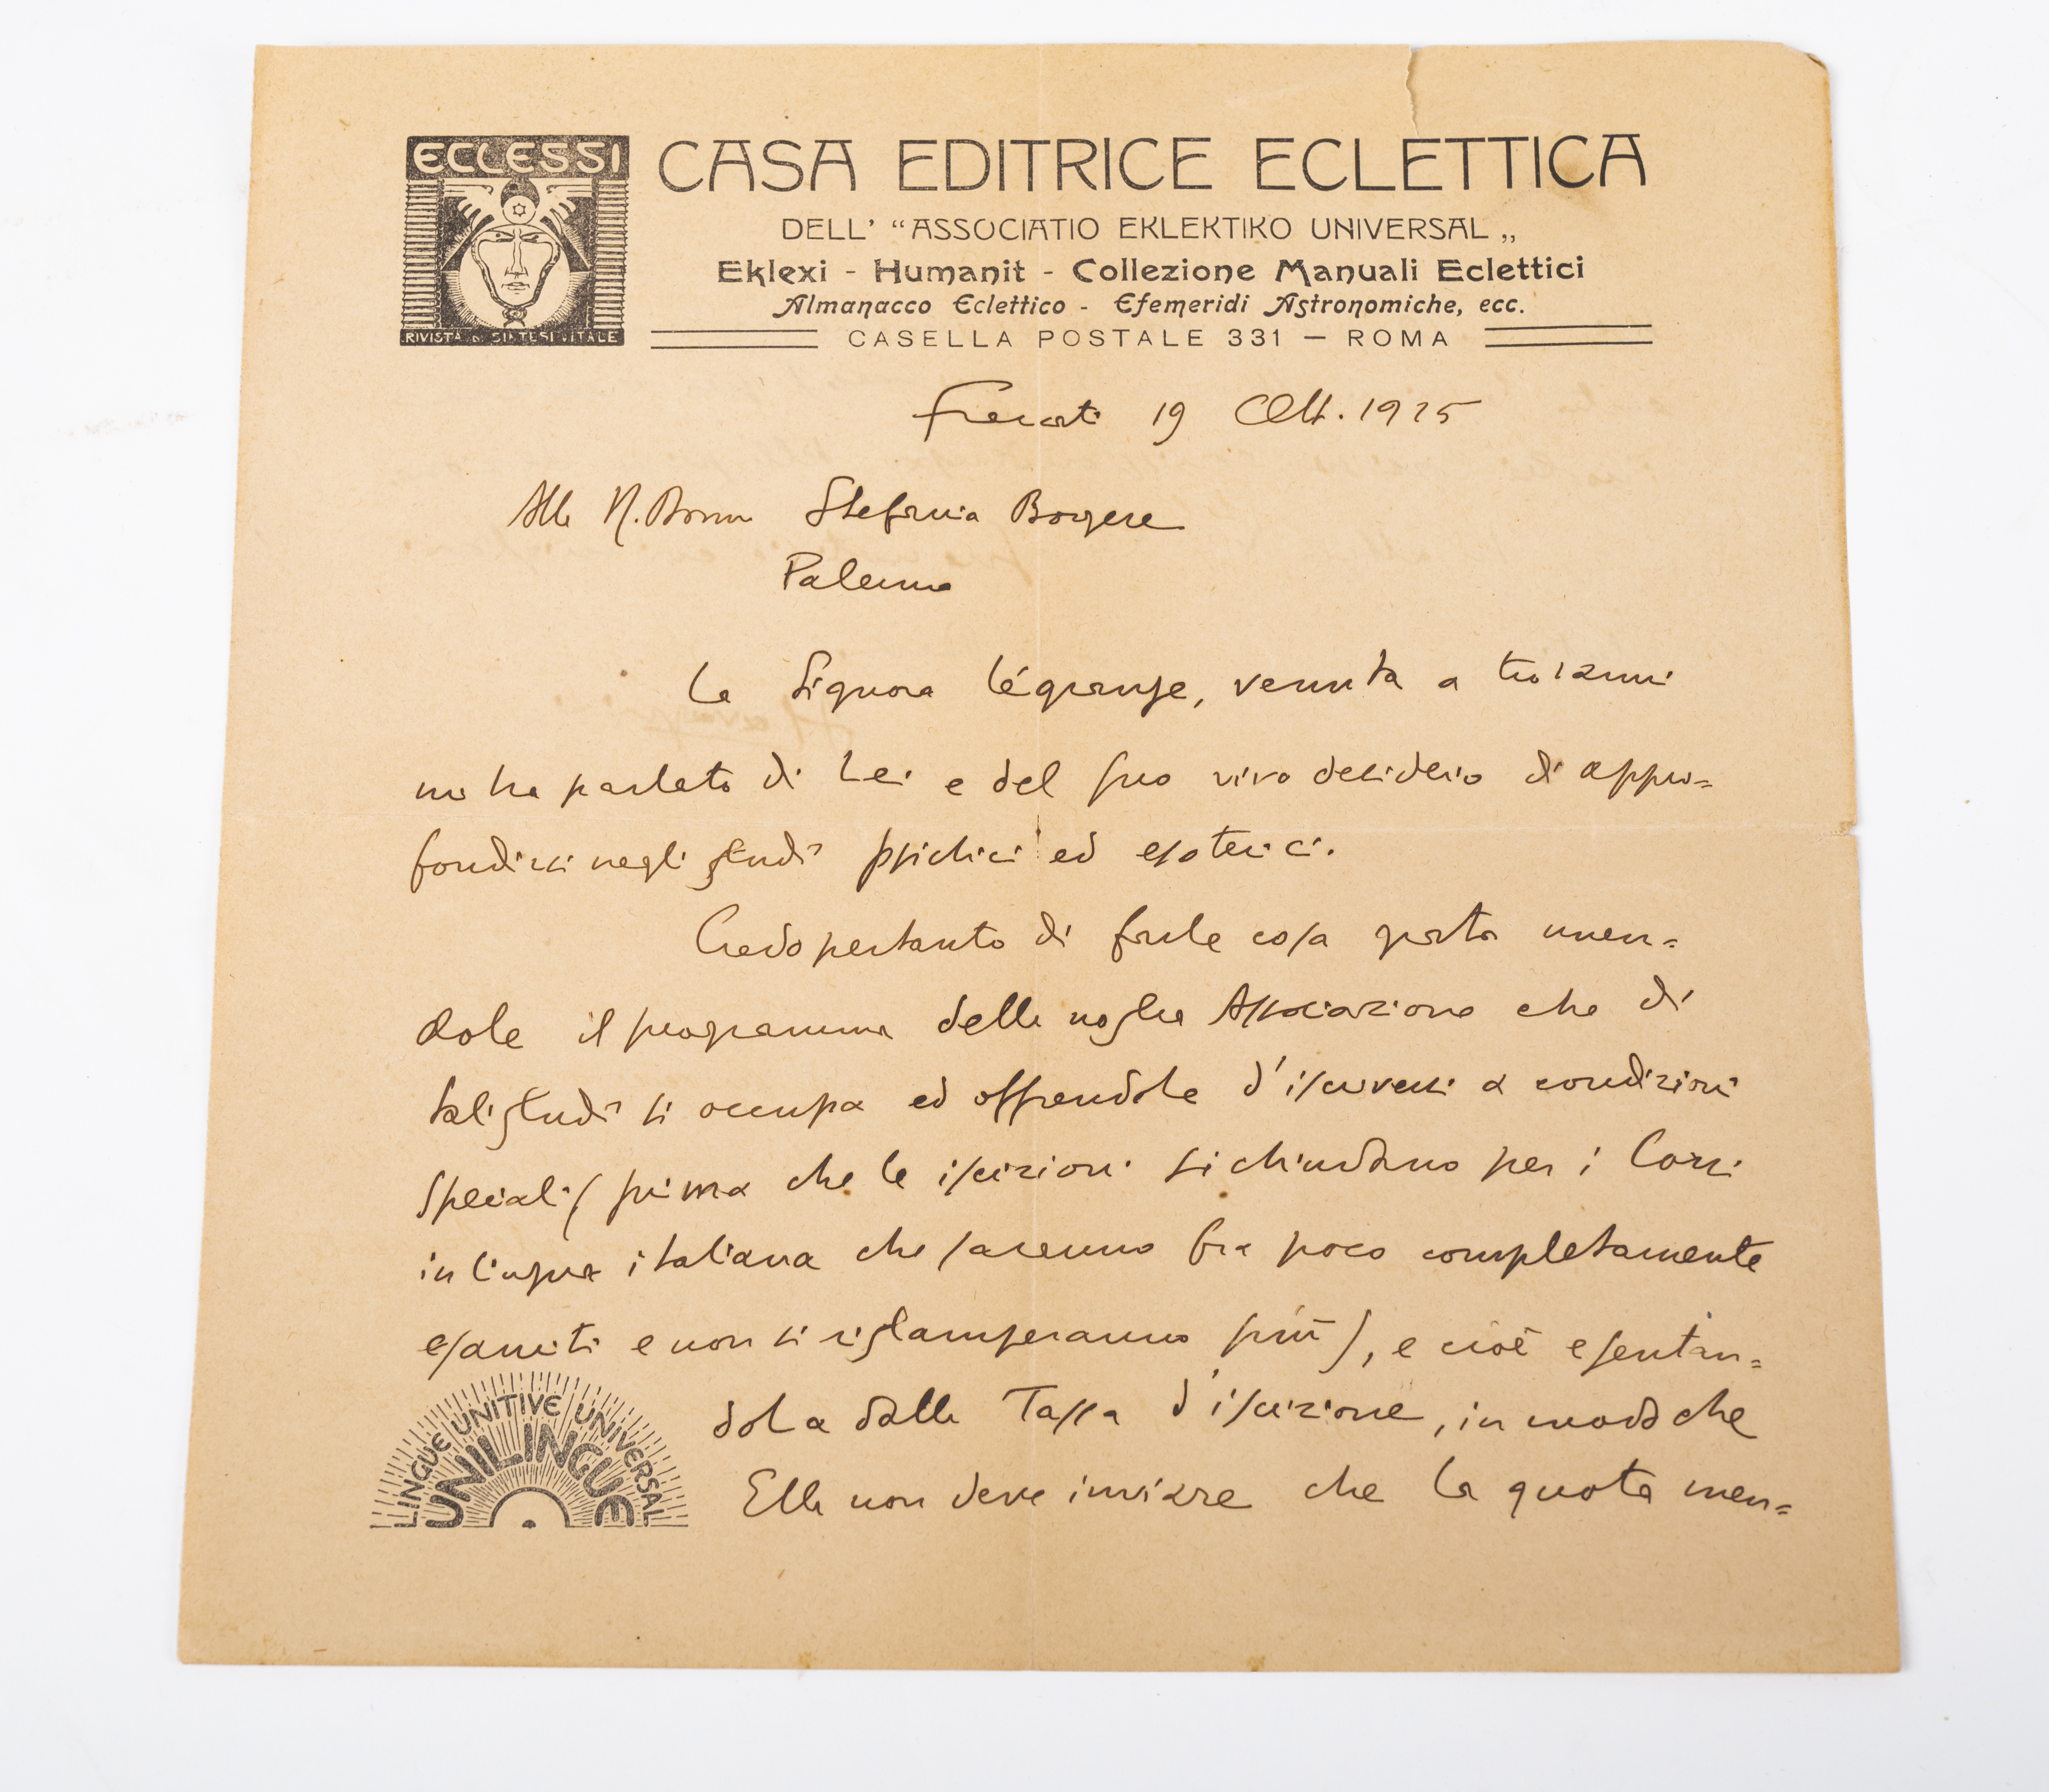 ECLESSI
RIVISTA DI SINTESI VITALE
CASA EDITRICE ECLETTICA
DELL' “ASSOCIATIO EKLEKTIKO UNIVERSAL„
Eklexi - Humanit - Collezione Manuali Eclettici
Almanacco Eclettico - Efemeridi Astronomiche, ecc.
CASELLA POSTALE 331 — ROMA
Frascati 19 Ott. 1925
Alla N. Donna Stefania
Palermo
La Signora Légrange, venuta a trovarmi
mi ha parlato di Lei e del suo vivo desiderio di appro=
fondirsi negli studi psichici ed esoterici.
Credo pertanto di farle cosa grata
il programma della nostra Associazione che di
tali studi si occupa ed offrendole d'iscriversi a condizioni
speciali (prima che le iscrizioni si chiudano per i Corsi
in lingua italiana che saranno fra poco completamente
esauriti e non si ristamperanno più), e cioè esentan=
dola dalla Tassa d'iscrizione, in modo che
Ella non deve inviare che la quota men=
LINGUE UNITIVE UNIVERSAL
UNILINGUE